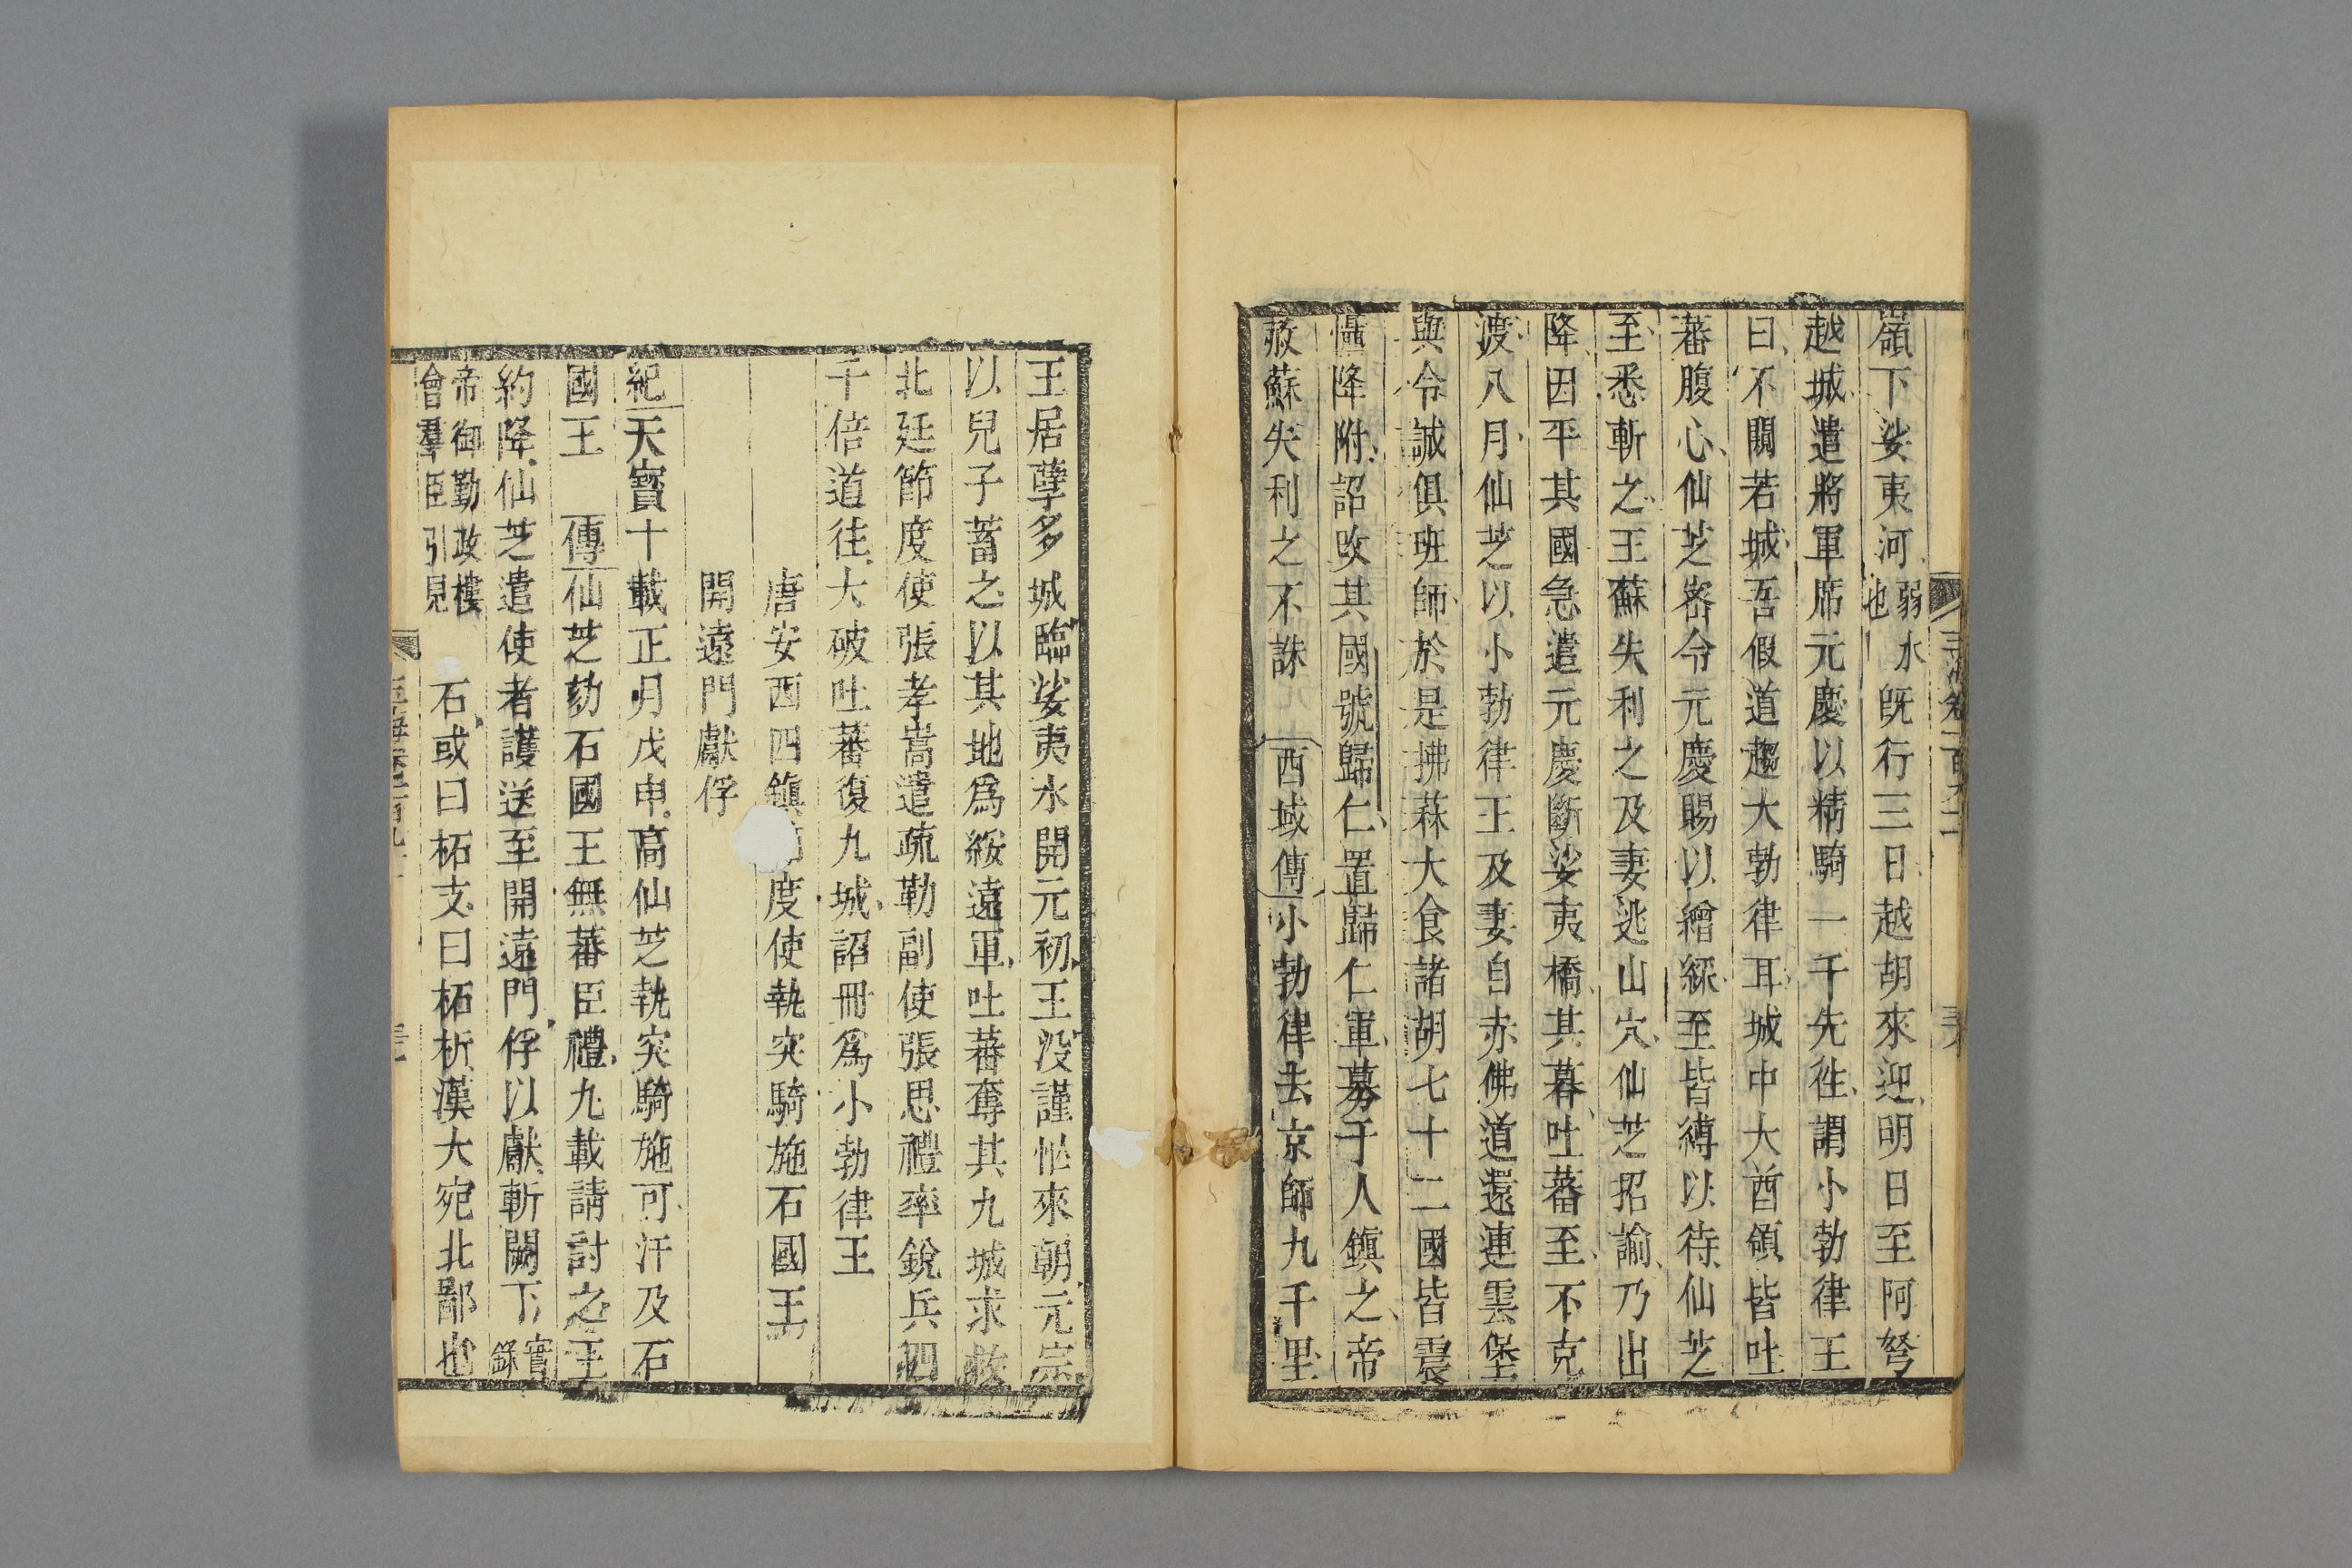 嶺下娑夷河弱水也既行三日越胡來迎明日至阿弩
越城遣將軍席元慶以精騎一千先往謂小勃律王
曰不闚若城吾假道趨大勃律耳城中大酋領皆吐
蕃腹心仙芝密令元慶賜以繒綵至皆縛以待仙芝
至悉斬之王蘇失利之及妻逃山穴仙芝招諭乃出
降因平其國急遣元慶斷娑夷橋其暮吐蕃至不克
渡八月仙芝以小勃律王及妻自赤佛道還連雲堡
與令誠俱班師於是拂菻大食諸胡七十二國皆震
懾降附詔改其國號歸仁置歸仁軍募千人鎮之帝
赦蘇失利之不誅西域傳小勃律去京師九千里
王居孽多城臨娑夷水開元初王没謹忙來朝元宗
以兒子蓄之以其地爲綏遠軍吐蕃奪其九城求救
北廷節度使張孝嵩遣疏勒副使張思禮率銳兵四
千倍道往大破吐蕃復九城詔冊爲小勃律王
唐安西四鎮度使執突騎施石國王
開遠門獻俘
紀天寶十載正月戊申高仙芝執突騎施可汗及石
國王 傳仙芝劾石國王無蕃臣禮九載請討之王
約降仙芝遣使者護送至開遠門俘以獻斬闕下實錄
帝御勤政樓會羣臣引見 石或曰柘支曰柘析漢大宛北鄙也